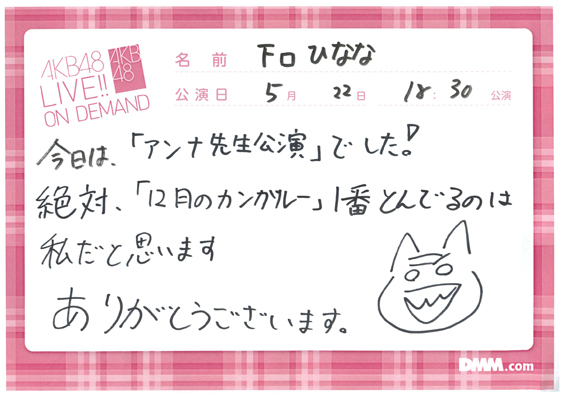 AKB48
LIVE!!
ON DEMAND
AKB
48
名前 下口ひなな
公演日 5月 22日 18:30 公演
今日は、「アンナ先生公演」でした!
絶対、「12月のカンガルー」1番とんでるのは
私だと思います
ありがとうございます。
DMM.com